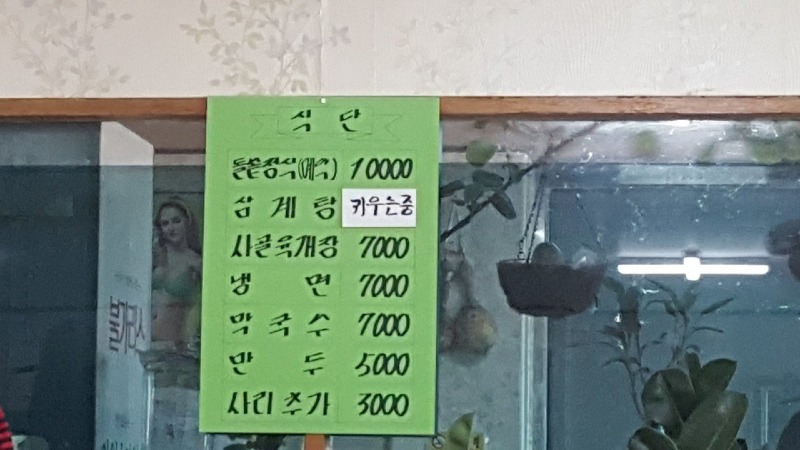 식 단
돌솥정식(예약) 10000
삼계탕 키우는중
사골육개장 7000
냉면 7000
막국수 7000
만두 5000
사리추가 3000
불가리스